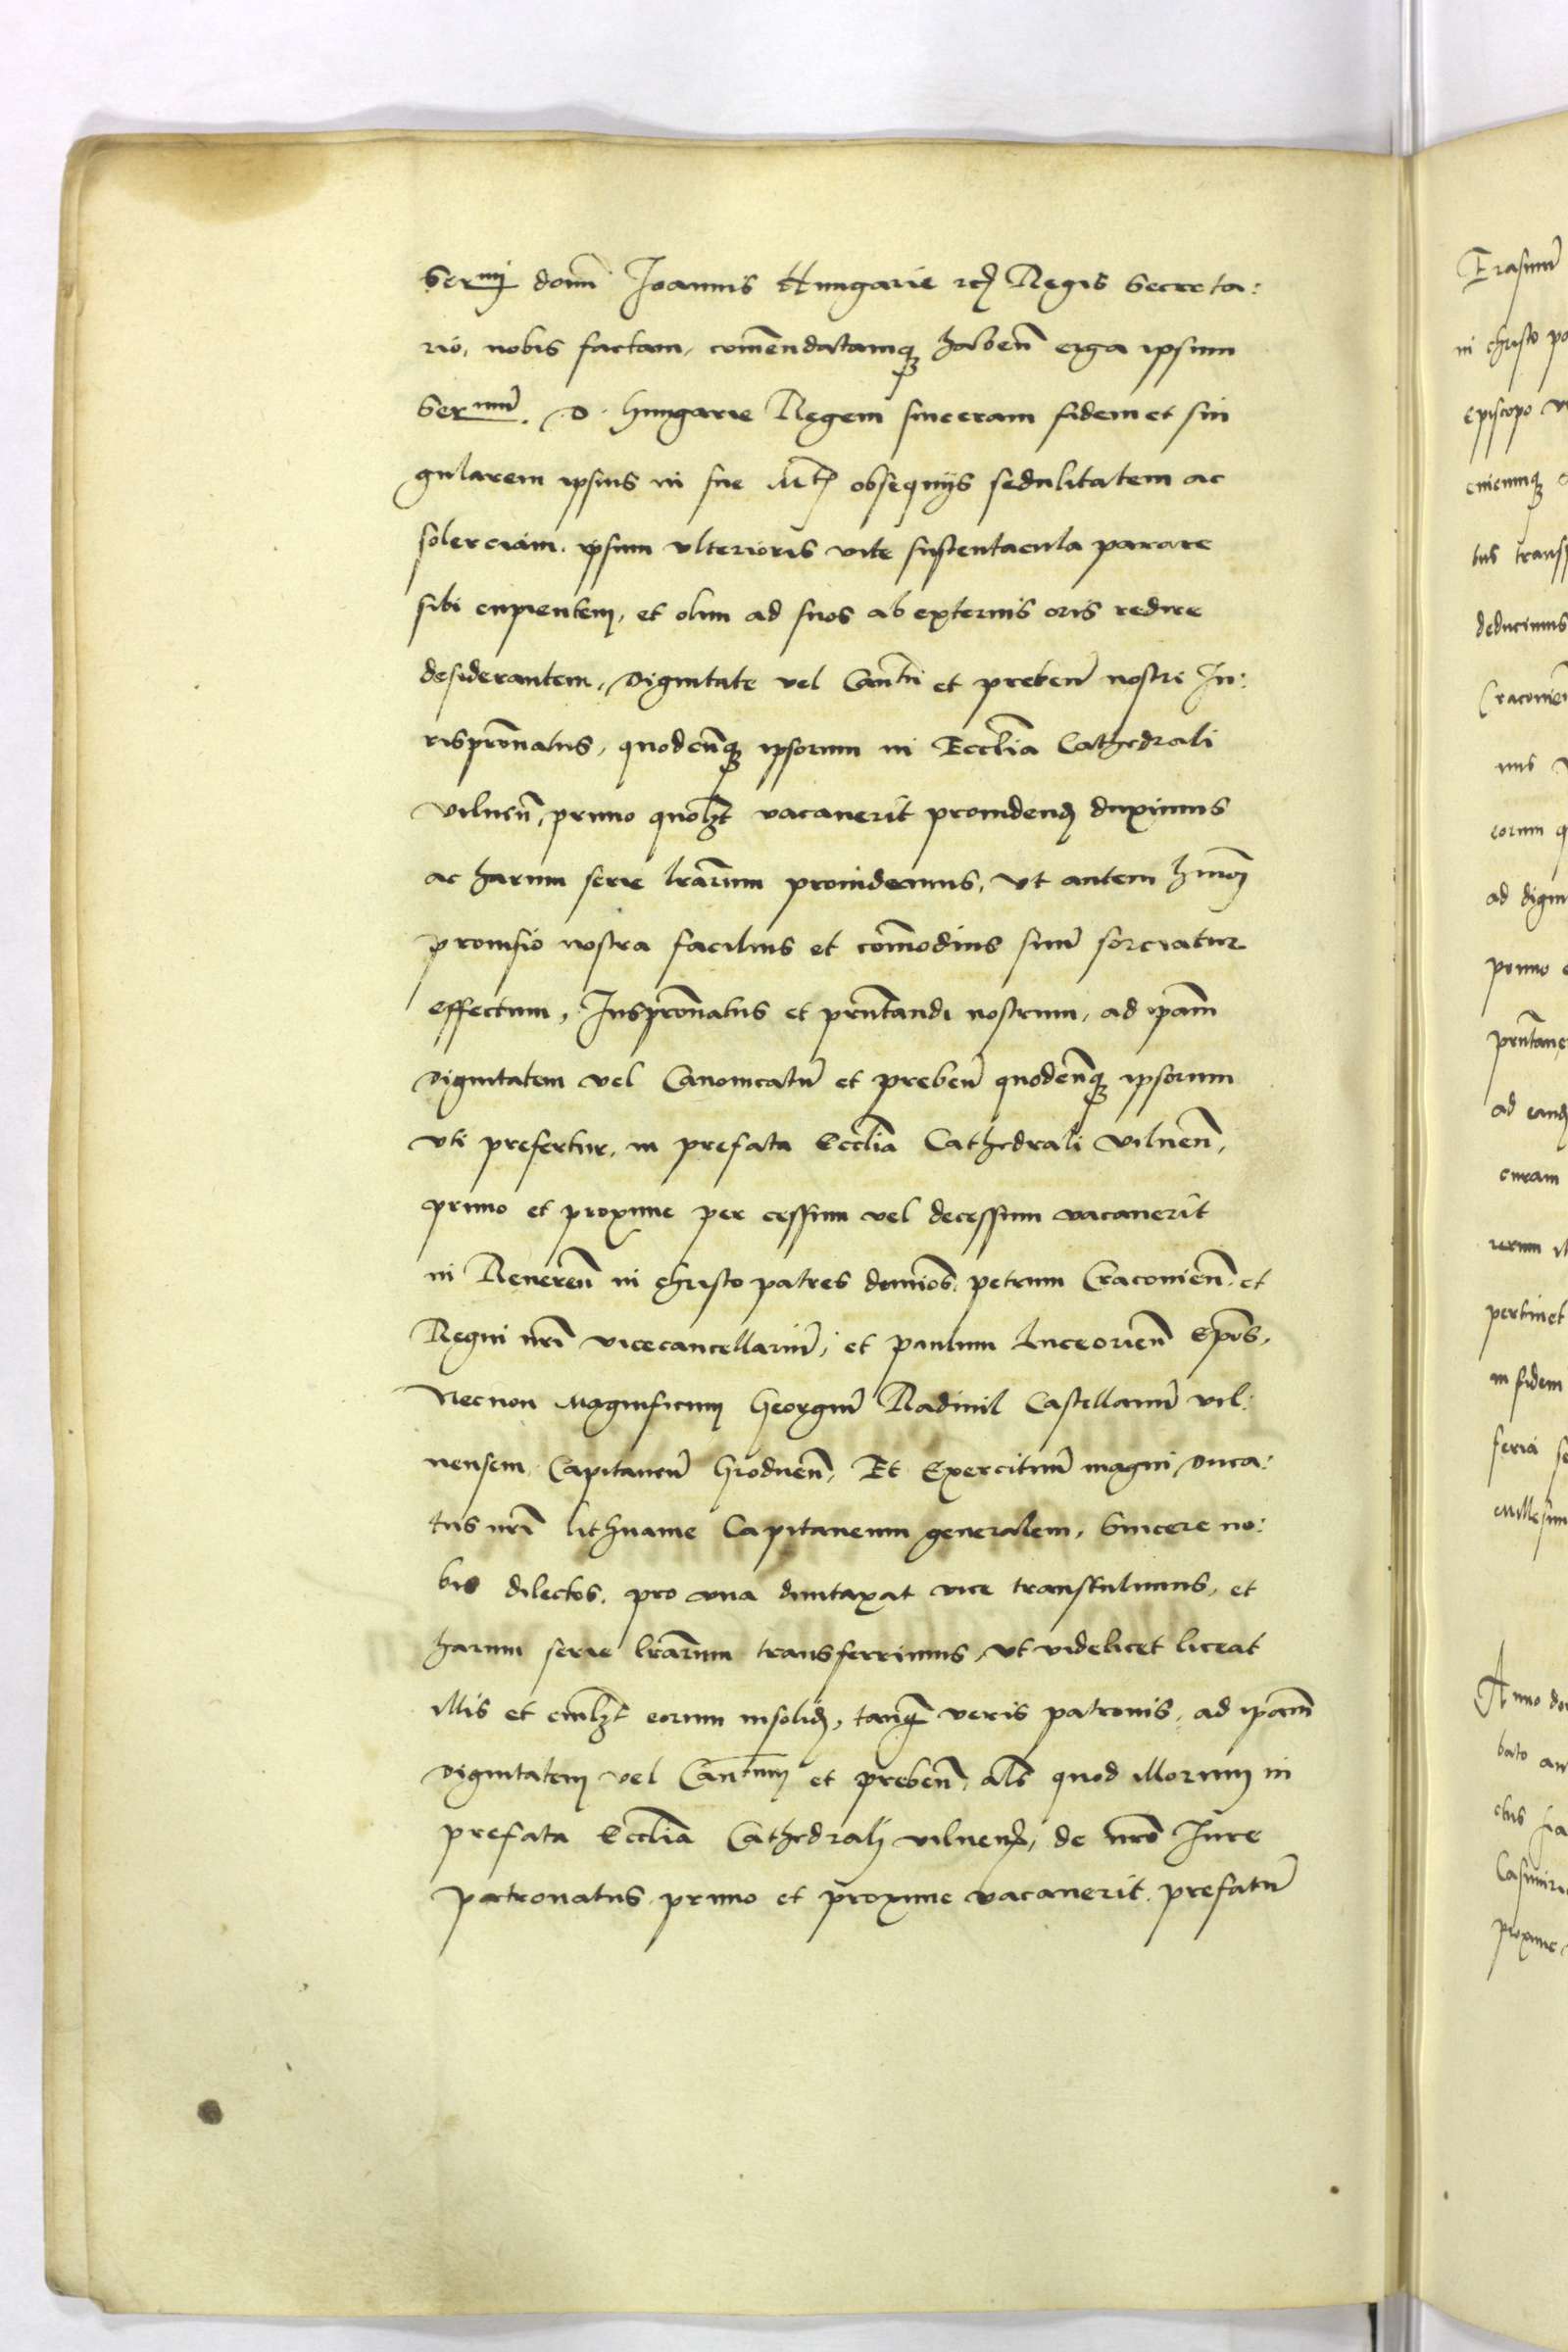 Serᵐⁱ domĩ Joannis Hungarie ꝛcꝫ Regis Secreta:
rio, nobis factam, comẽndatamqꝫ habeñ erga ipsum
Serᵐũ. D. Hungarie Regem sinceram fidem et sin
gularem ipsius in sue Mᵗⁱˢ obsequijs sedulitatem ac
solerciam. ipsum vlterioris vite sustentacula parare
sibi cupientem, et olim ad suos ab externis oris redire
desiderantem, Dignitate vel Canᵗᵘ et prebeñ nostri Ju:
rispr̃onatus, quodcũqꝫ ipsorum in Ecclĩa Cathedrali
Vilneñ, primo quolꝫt vacauerit prouidendꝫ duximus
ac harum serie lr̃arum prouidemus, Vt autem hm̃oi
prouisio nostra facilius et com̃odius suũ sorciatur
effectum, Juspr̃onatus et prñtandi nostrum, ad ip̃am
Dignitatem vel Canonicatũ et prebeñ quodcũqꝫ ipsorum
vti prefertur, in prefata Ecclĩa Cathedrali Vilneñ,
primo et proxime per cessum vel decessum vacauerit
in Reuereñ in christo patres dominos. petrum Cracouieñ. et
Regni nr̃i vicecancellariũ, et paulum Luceorieñ Ep̃os,
Necnon Magnificum Georgiũ Radiuil Castellanũ vil:
nensem Capitaneũ Grodneñ, Et Exercituũ magni Duca:
tus nr̃i lithuanie Capitaneum generalem, Sincere no:
bis dilectos. pro vna duntaxat vice transtulimus, et
harum serie lr̃arum transferrimus, vt videlicet liceat
illis et cuilꝫt eorum insolidꝫ, tanq̃ veris patronis, ad ip̃am
Dignitatem vel Canᵗᵘᵐ et prebeñ, als̃ quod illorum in
prefata Ecclĩa Cathedrali vilnenꝫ, de nr̃o Jure
patronatus primo et proxime vacauerit. prefatũ
Erasmũ
in christo
Episcopo
cuicunqꝫ
tus
deducimus
nus
eorum
ad
primo
prñtane
ad
curam
rerum
pertinet
in fidem
feria
Millesim
Anno
bato
ctus
Casimiri
proxime